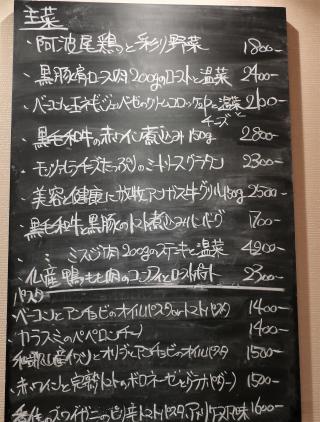 主菜
・阿波尾鶏っと彩り野菜 1800-
・黒豚肩ロース肉200gのローストと温菜 2400-
ベーコンと の クリームコロッケ と温菜 2100-
チーズと
・黒毛和牛の赤ワイン煮込み150g 2800-
・モッツァレラチーズたっぷりのミートソースグラタン 2300-
・美容と健康に放牧アンガス牛グリル150g 2500-
・黒毛和牛と黒豚のトマト煮込みハンバーグ 1700-
・〃 ミスジ肉200gのステーキと温菜 4200-
・仏産鴨もも肉のコンフィとローストポテト 2300-
パスタ
・ベーコンとアンチョビのオイルパスタorトマトパスタ 1400-
・カラスミのペペロンチーノ 1400-
とオリーブとアンチョビのオイルパスタ 1500-
・赤ワインと完熟トマトのボロネーゼ(グラナパダーノ) 1500-
ズワイガニのピリ辛トマトパスタ アメリケーヌ風味 1600-